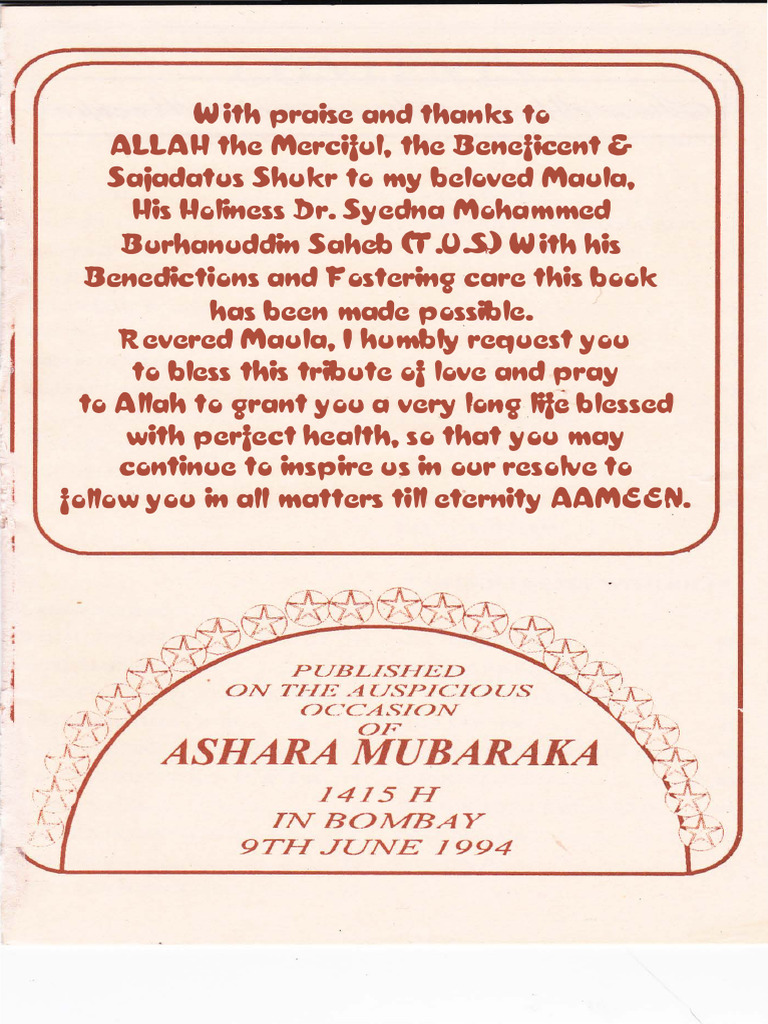 With praise and thanks to
ALLAH the Merciful, the Beneficent &
Sajadatus Shukr to my beloved Maula,
His Holiness Dr. Syedna Mohammed
Burhanuddin Saheb (T.U.S) With his
Benedictions and Fostering care this book
has been made possible.
Revered Maula, I humbly request you
to bless this tribute of love and pray
to Allah to grant you a very long life blessed
with perfect health, so that you may
continue to inspire us in our resolve to
follow you in all matters till eternity AAMEEN.
PUBLISHED
ON THE AUSPICIOUS
OCCASION
OF
ASHARA MUBARAKA
1415 H
IN BOMBAY
9TH JUNE 1994